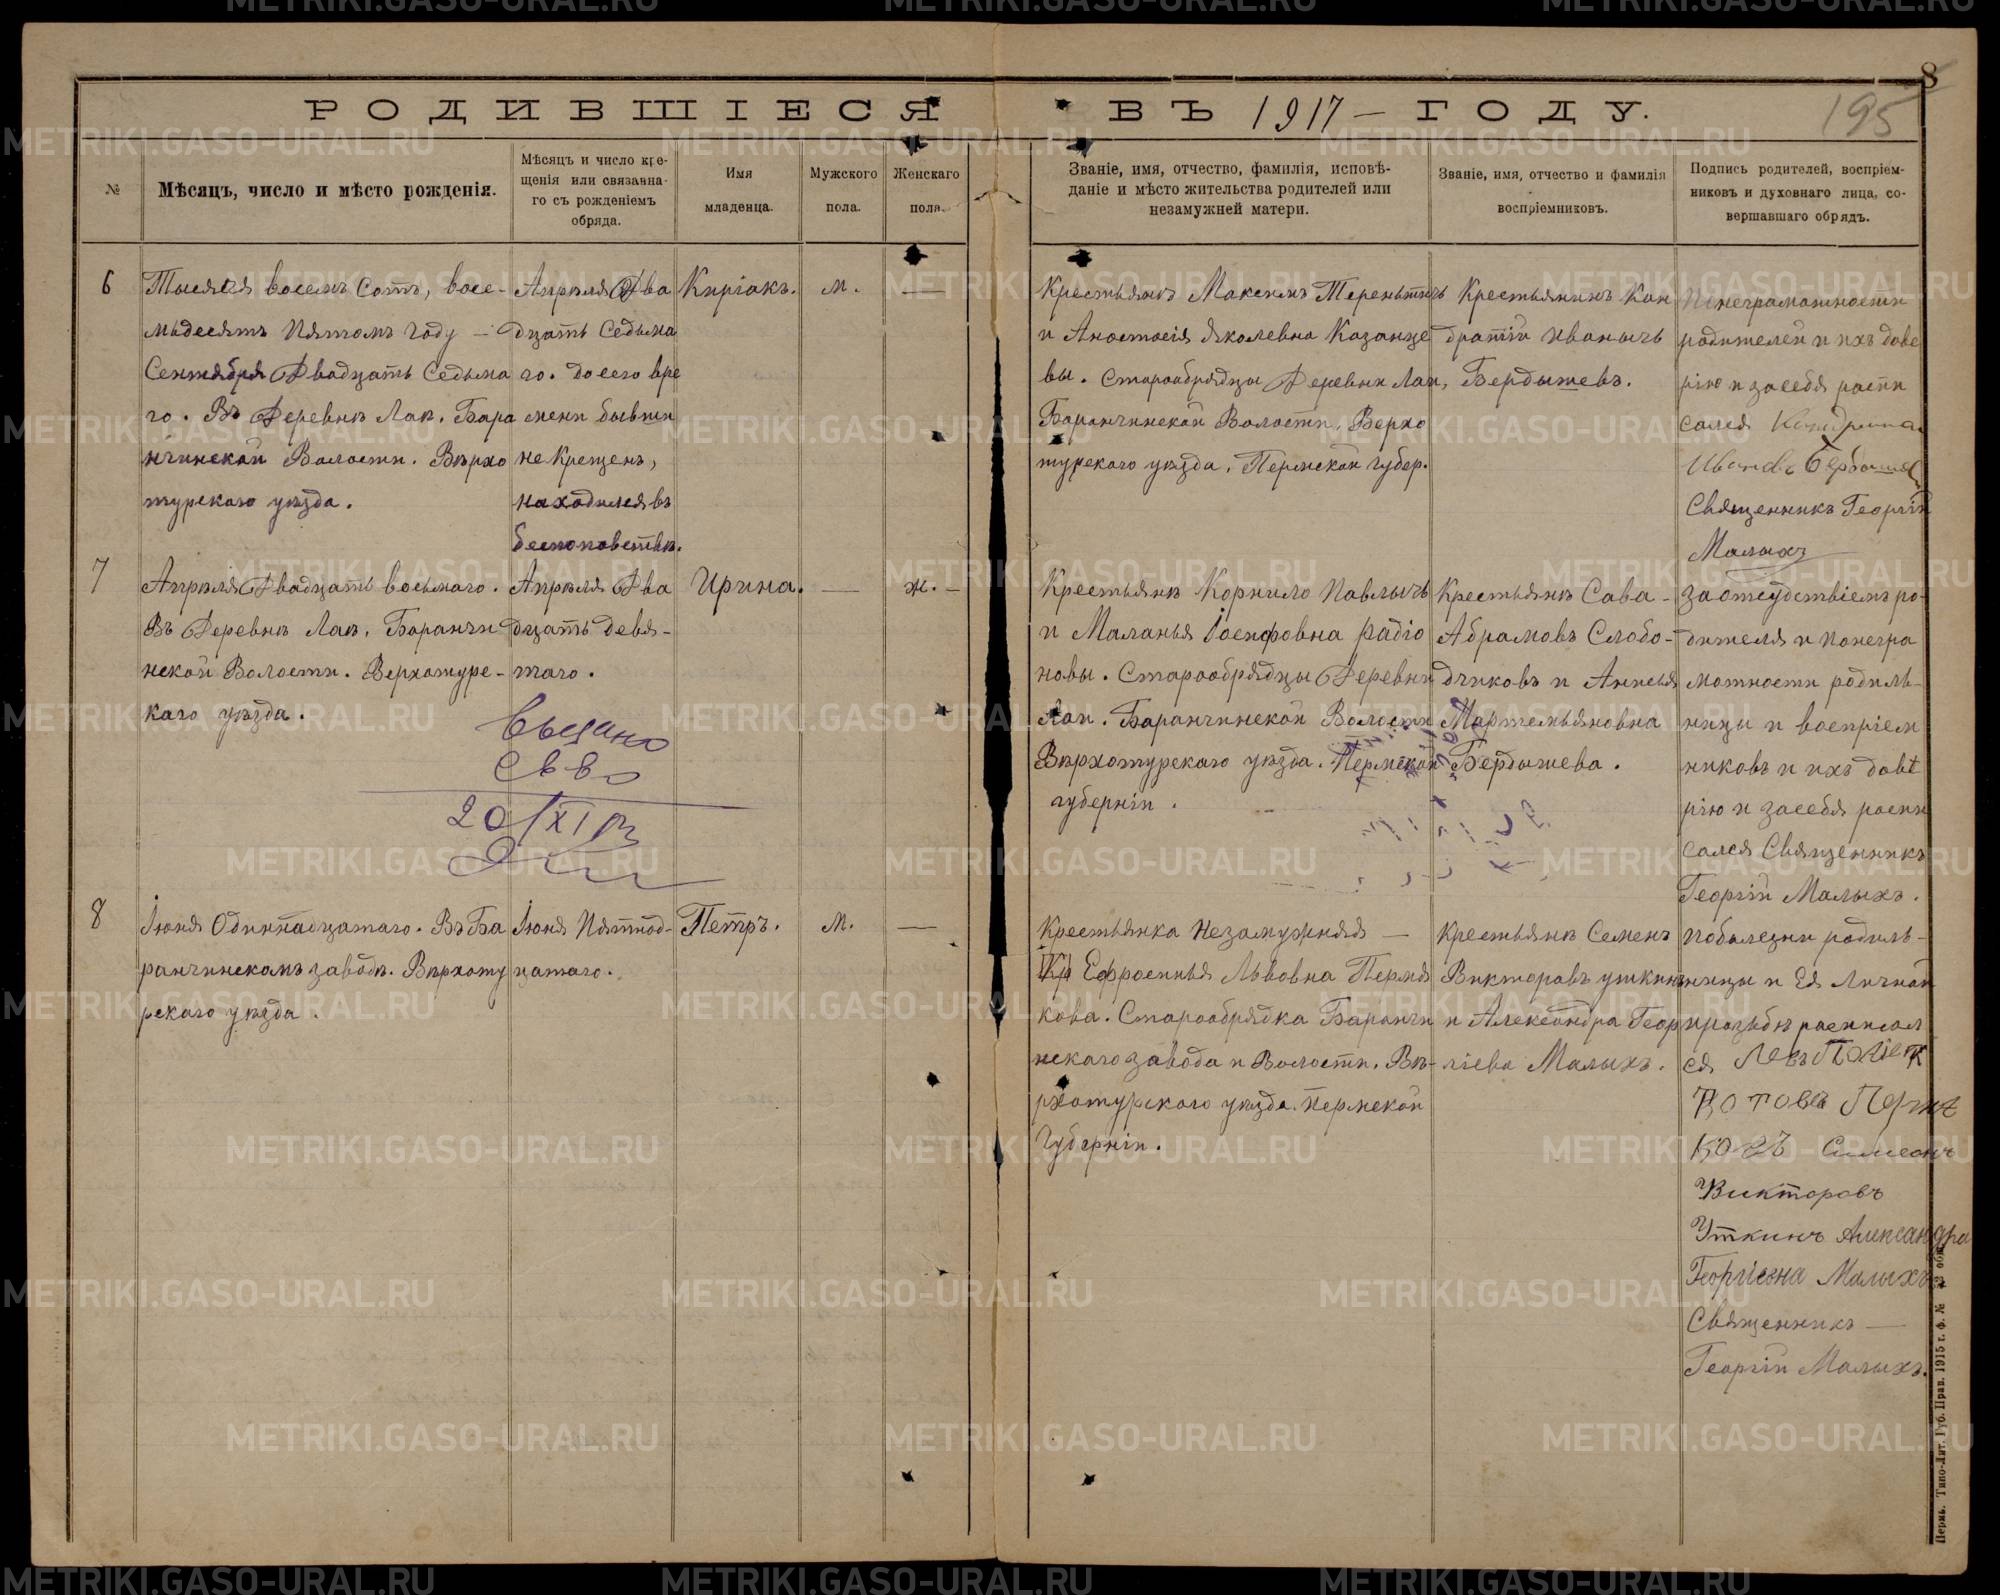 8
195
РОДИВШІЕСЯ ВЪ 1917 — ГОДУ.
№
Мѣсяцъ, число и мѣсто рожденія.
Мѣсяцъ и число кре-
щенія или связанна-
го съ рожденіемъ
обряда.
Имя
младенца.
Мужского
пола.
Женскаго
пола.
Званіе, имя, отчество, фамилія, исповѣ-
даніе и мѣсто жительства родителей или
незамужней матери.
Званіе, имя, отчество и фамилія
воспріемниковъ.
Подпись родителей, воспріем-
никовъ и духовнаго лица, со-
вершавшаго обрядъ.
6
Тысяся восемъ Сотъ, восе-
мьдесятъ Пятомъ году —
Сентября Двадцать Седьма
го. Въ Деревнѣ Лаѣ. Бара
нчинской Волости. Верхо
турскаго уѣзда.
Апрѣля Два
дцать Седьма
го. До сего вре
мени бывши
не Крещенъ,
находился въ
беспоповствѣ.
Киріакъ.
м.
—
Крестьянъ Максимъ Терентьичъ
и Анастасія Яковлевна Казанце
вы. Старообрядцы Деревни Лаи,
Баранчинской Волости, Верхо
турскаго уѣзда, Пермской губер.
Крестьянинъ Кон
дратій Иванычъ
Бердышевъ.
По неграмотности
родителей и ихъ дове
рію и за себя распи
сался
Ивановъ
Священникъ Георгій
Малыхъ
7
Апрѣля Двадцать восьмаго.
Въ Деревнѣ Лаѣ, Баранчи
нской Волости. Верхотурс-
каго уѣзда.
Апрѣля Два
дцать девя-
таго.
Ирина.
—
ж. —
Крестьянъ Корнило Павлычъ
и Маланья Іосифовна Радіо
новы. Старообрядцы Деревни
Лаи. Баранчинской Волости
Верхотурскаго уѣзда. Пермской
губерніи.
Крестьянъ Сава —
Абрамовъ Слобо-
дчиковъ и Анисья
Мартемьяновна
Бердышева.
За отсудствіемъ ро-
дителя и по негра
мотности родиль-
ницы и воспріем
никовъ и ихъ довѣ
рію и за себя распи
сался Священникъ
Георгій Малыхъ.
Выдано
св-во
20/XI
8
Іюня Одиннадцатаго. Въ Ба
ранчинскомъ заводѣ. Верхоту
рскаго уѣзда.
Іюня Пятнад-
цатаго.
Петръ.
м.
—
Крестьянка Незамужняя —
Кр Ефросинья Львовна Пермя
кова. Старообрядка Баранчи
нскаго завода и Волости. Ве-
рхотурскаго уѣзда. Пермской
Губерніи.
Крестьянъ Семенъ
Викторавъ Уткинъ
и Александра Геор
гіева Малыхъ.
По болезни родиль-
ницы и Ея Личной
прозьбѣ расписал
ся Левъ
Пермя
ковъ Симеонъ
Викторовъ
Уткинъ Александра
Георгіевна Малыхъ
Священникъ —
Георгій Малыхъ.
Пермь. Типо-Лит. Губ. Прав. 1915 г. ф. №